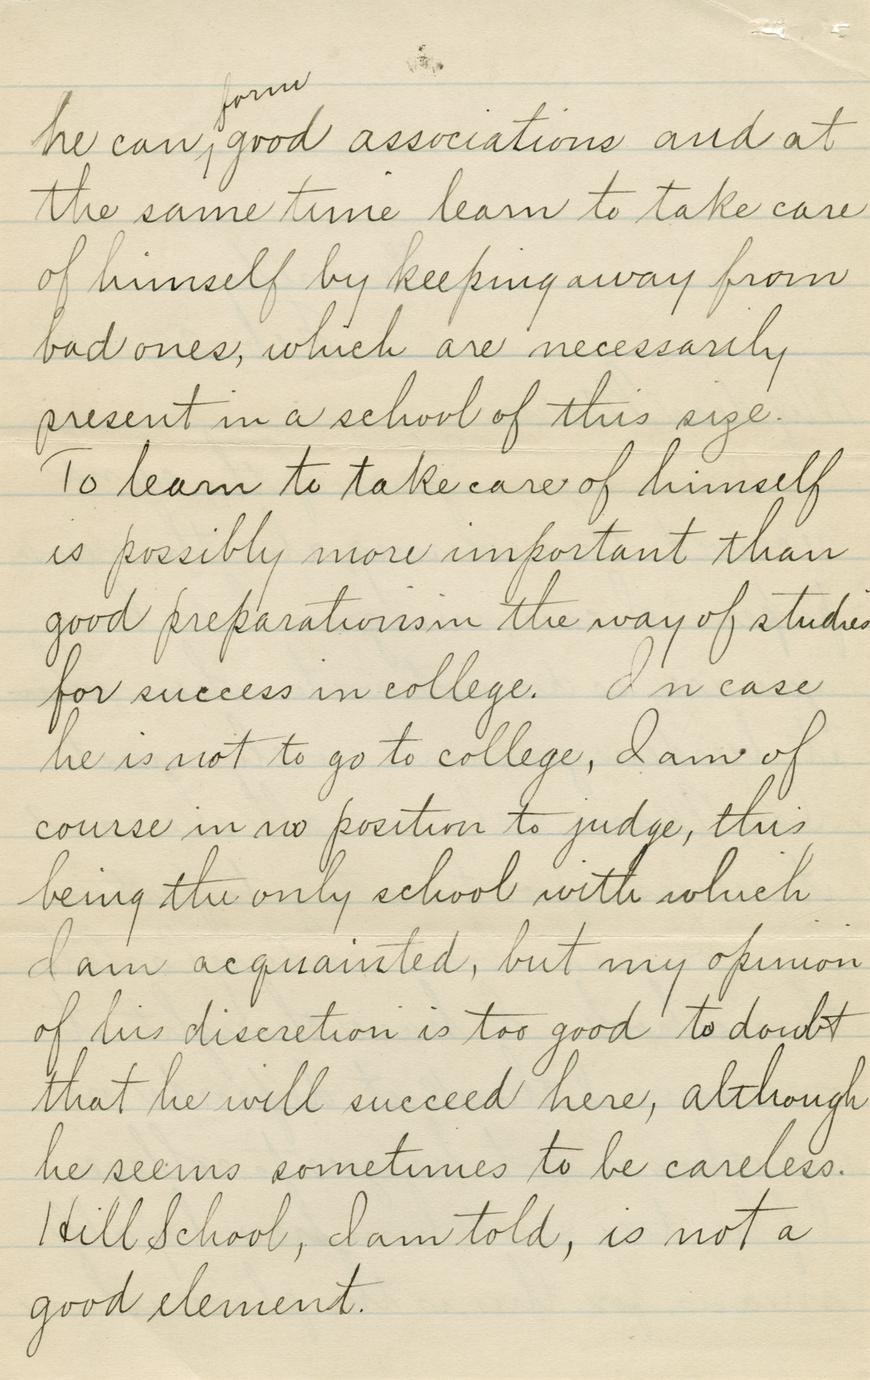 form
he can, good associations and at
the same time learn to take care
of himself by keeping away from
bad ones, which are necessarily
present in a school of this size.
To learn to take care of himself
is possibly more important than
good preparations in the way of studies
for success in college. In case
he is not to go to college, I am of
course in no position to judge, this
being the only school with which
I am acquainted, but my opinion
of his discretion is too good to doubt
that he will succeed here, although
he seems sometimes to be careless.
Hill School, I am told, is not a
good element.